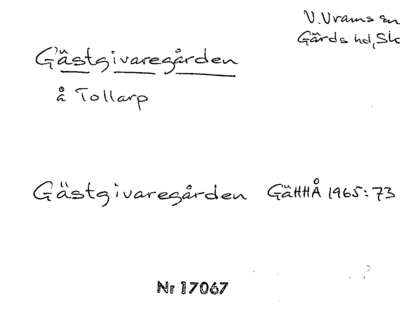 V. Vrams sn
Gärds hd, Sk
Gästgivaregården
å Tollarp
Gästgivaregården GäHHÅ 1965:73
Nr 17067